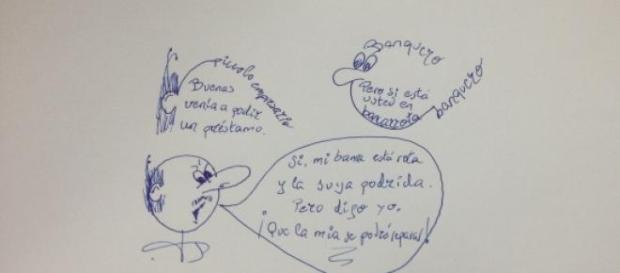 piccolo empresario
Buenas
venía a pedir
un préstamo.
Banquero
Pero si está
usted en
bancarrota
banquero
Si, mi banca está rota
y la suya podrida.
Pero digo yo.
¡Que la mía se podrá reparar!